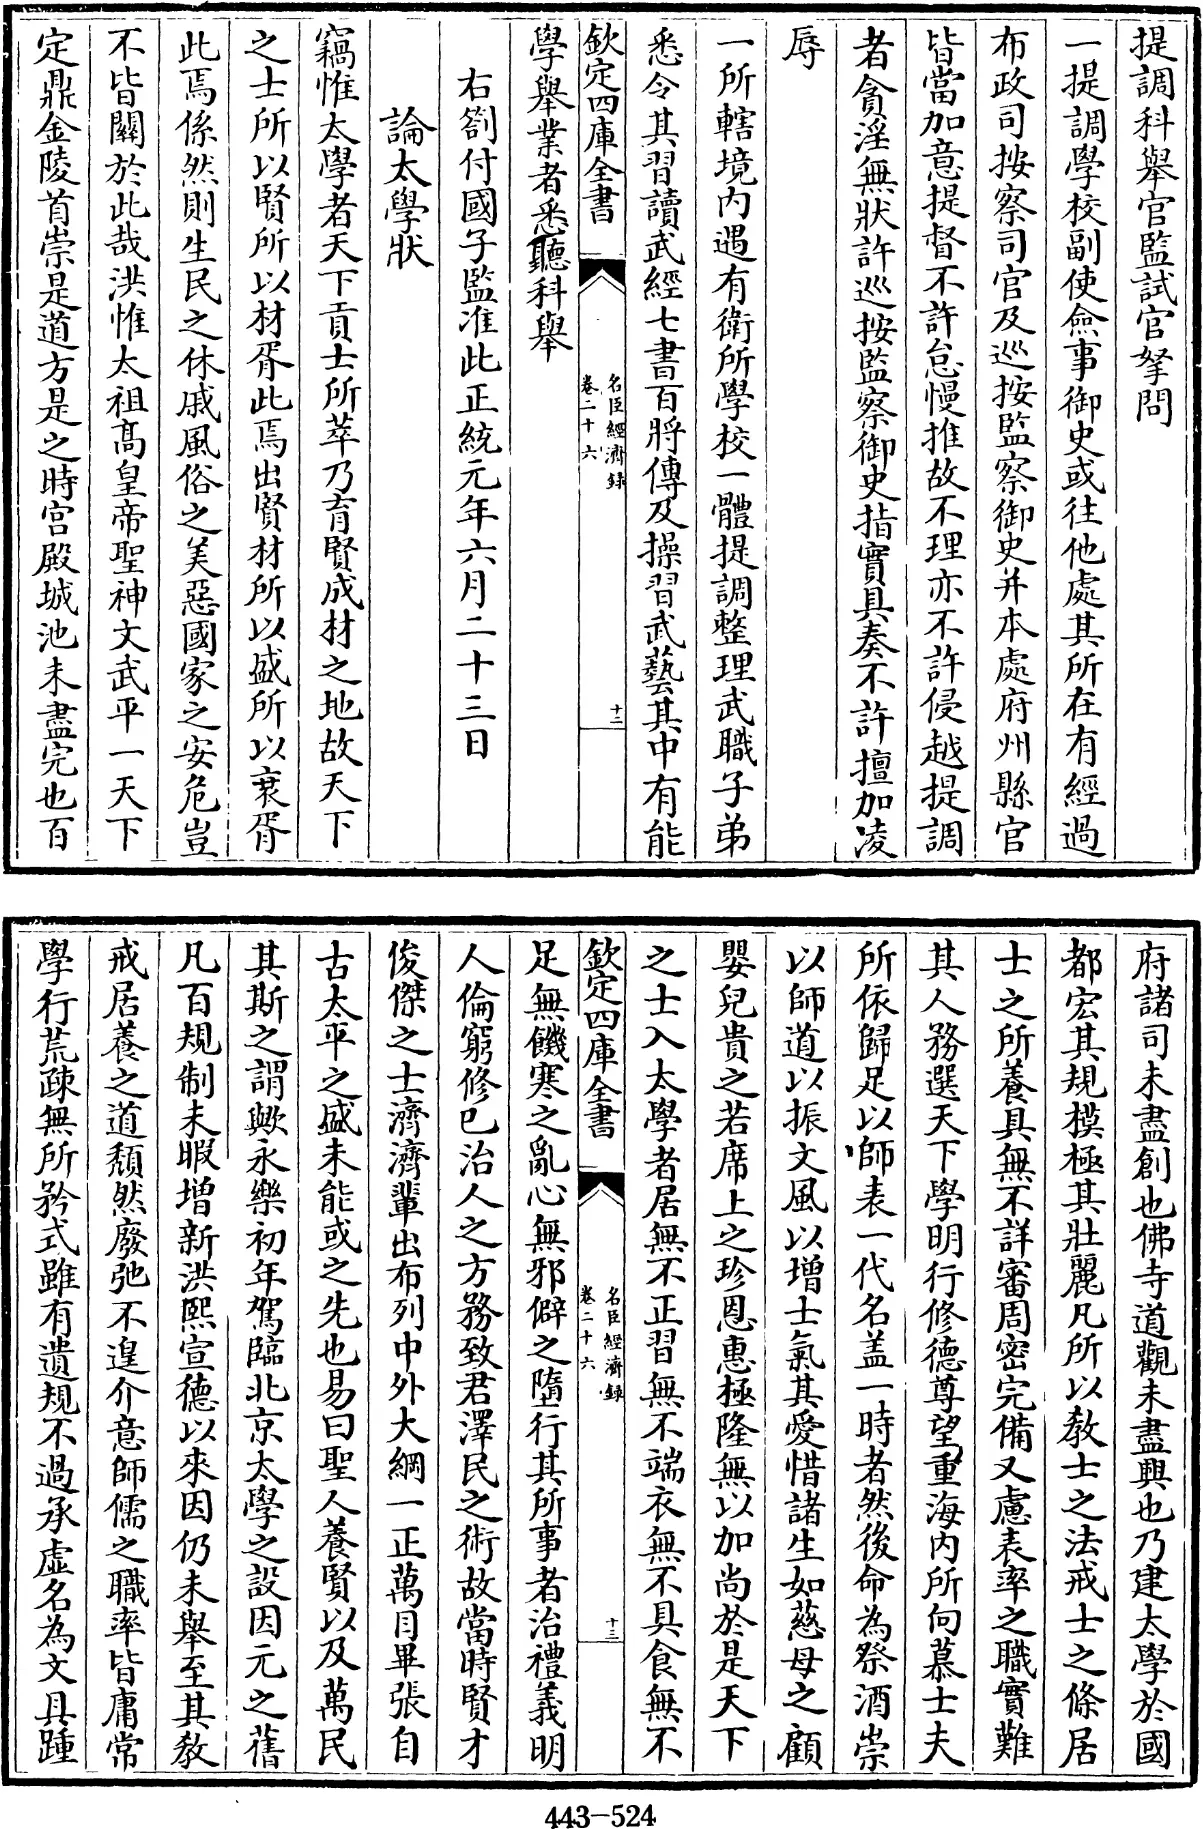 提調科舉官監試官拏問
一提調學校副使僉事御史或往他處其所在有經過
布政司按察司官及巡按監察御史并本處府州縣官
皆當加意提督不許怠慢推故不理亦不許侵越提調
者貪淫無狀許巡按監察御史指實具奏不許擅加凌
辱
一所轄境内遇有衛所學校一體提調整理武職子弟
悉令其習讀武經七書百將傳及操習武藝其中有能
欽定四庫全書
名臣經濟録
卷二十六
十二
學舉業者悉聽科舉
右劄付國子監准此正統元年六月二十三日
論太學狀
竊惟太學者天下貢士所萃乃育賢成材之地故天下
之士所以賢所以材胥此焉出賢材所以盛所以衰胥
此焉係然則生民之休戚風俗之美惡國家之安危豈
不皆關於此哉洪惟太祖高皇帝聖神文武平一天下
定鼎金陵首崇是道方是之時宫殿城池未盡完也百
府諸司未盡創也佛寺道觀未盡興也乃建太學於國
都宏其規模極其壯麗凡所以教士之法戒士之條居
士之所養具無不詳審周密完備又慮表率之職實難
其人務選天下學明行修德尊望重海内所向慕士夫
所依歸足以師表一代名盖一時者然後命為祭酒崇
以師道以振文風以增士氣其愛惜諸生如慈母之顧
嬰兒貴之若席上之珍恩惠極隆無以加尚於是天下
之士入太學者居無不正習無不端衣無不具食無不
欽定四庫全書
名臣經濟録
卷二十六
十三
足無饑寒之亂心無邪僻之墮行其所事者治禮義明
人倫窮修已治人之方務致君澤民之術故當時賢才
俊傑之士濟濟輩出布列中外大綱一正萬目畢張自
古太平之盛未能或之先也易曰聖人養賢以及萬民
其斯之謂歟永樂初年駕臨北京太學之設因元之舊
凡百規制未暇增新洪熙宣德以來因仍未舉至其教
戒居養之道頽然廢弛不遑介意師儒之職率皆庸常
學行荒疎無所矜式雖有遺規不過承虚名為文具踵
443-524